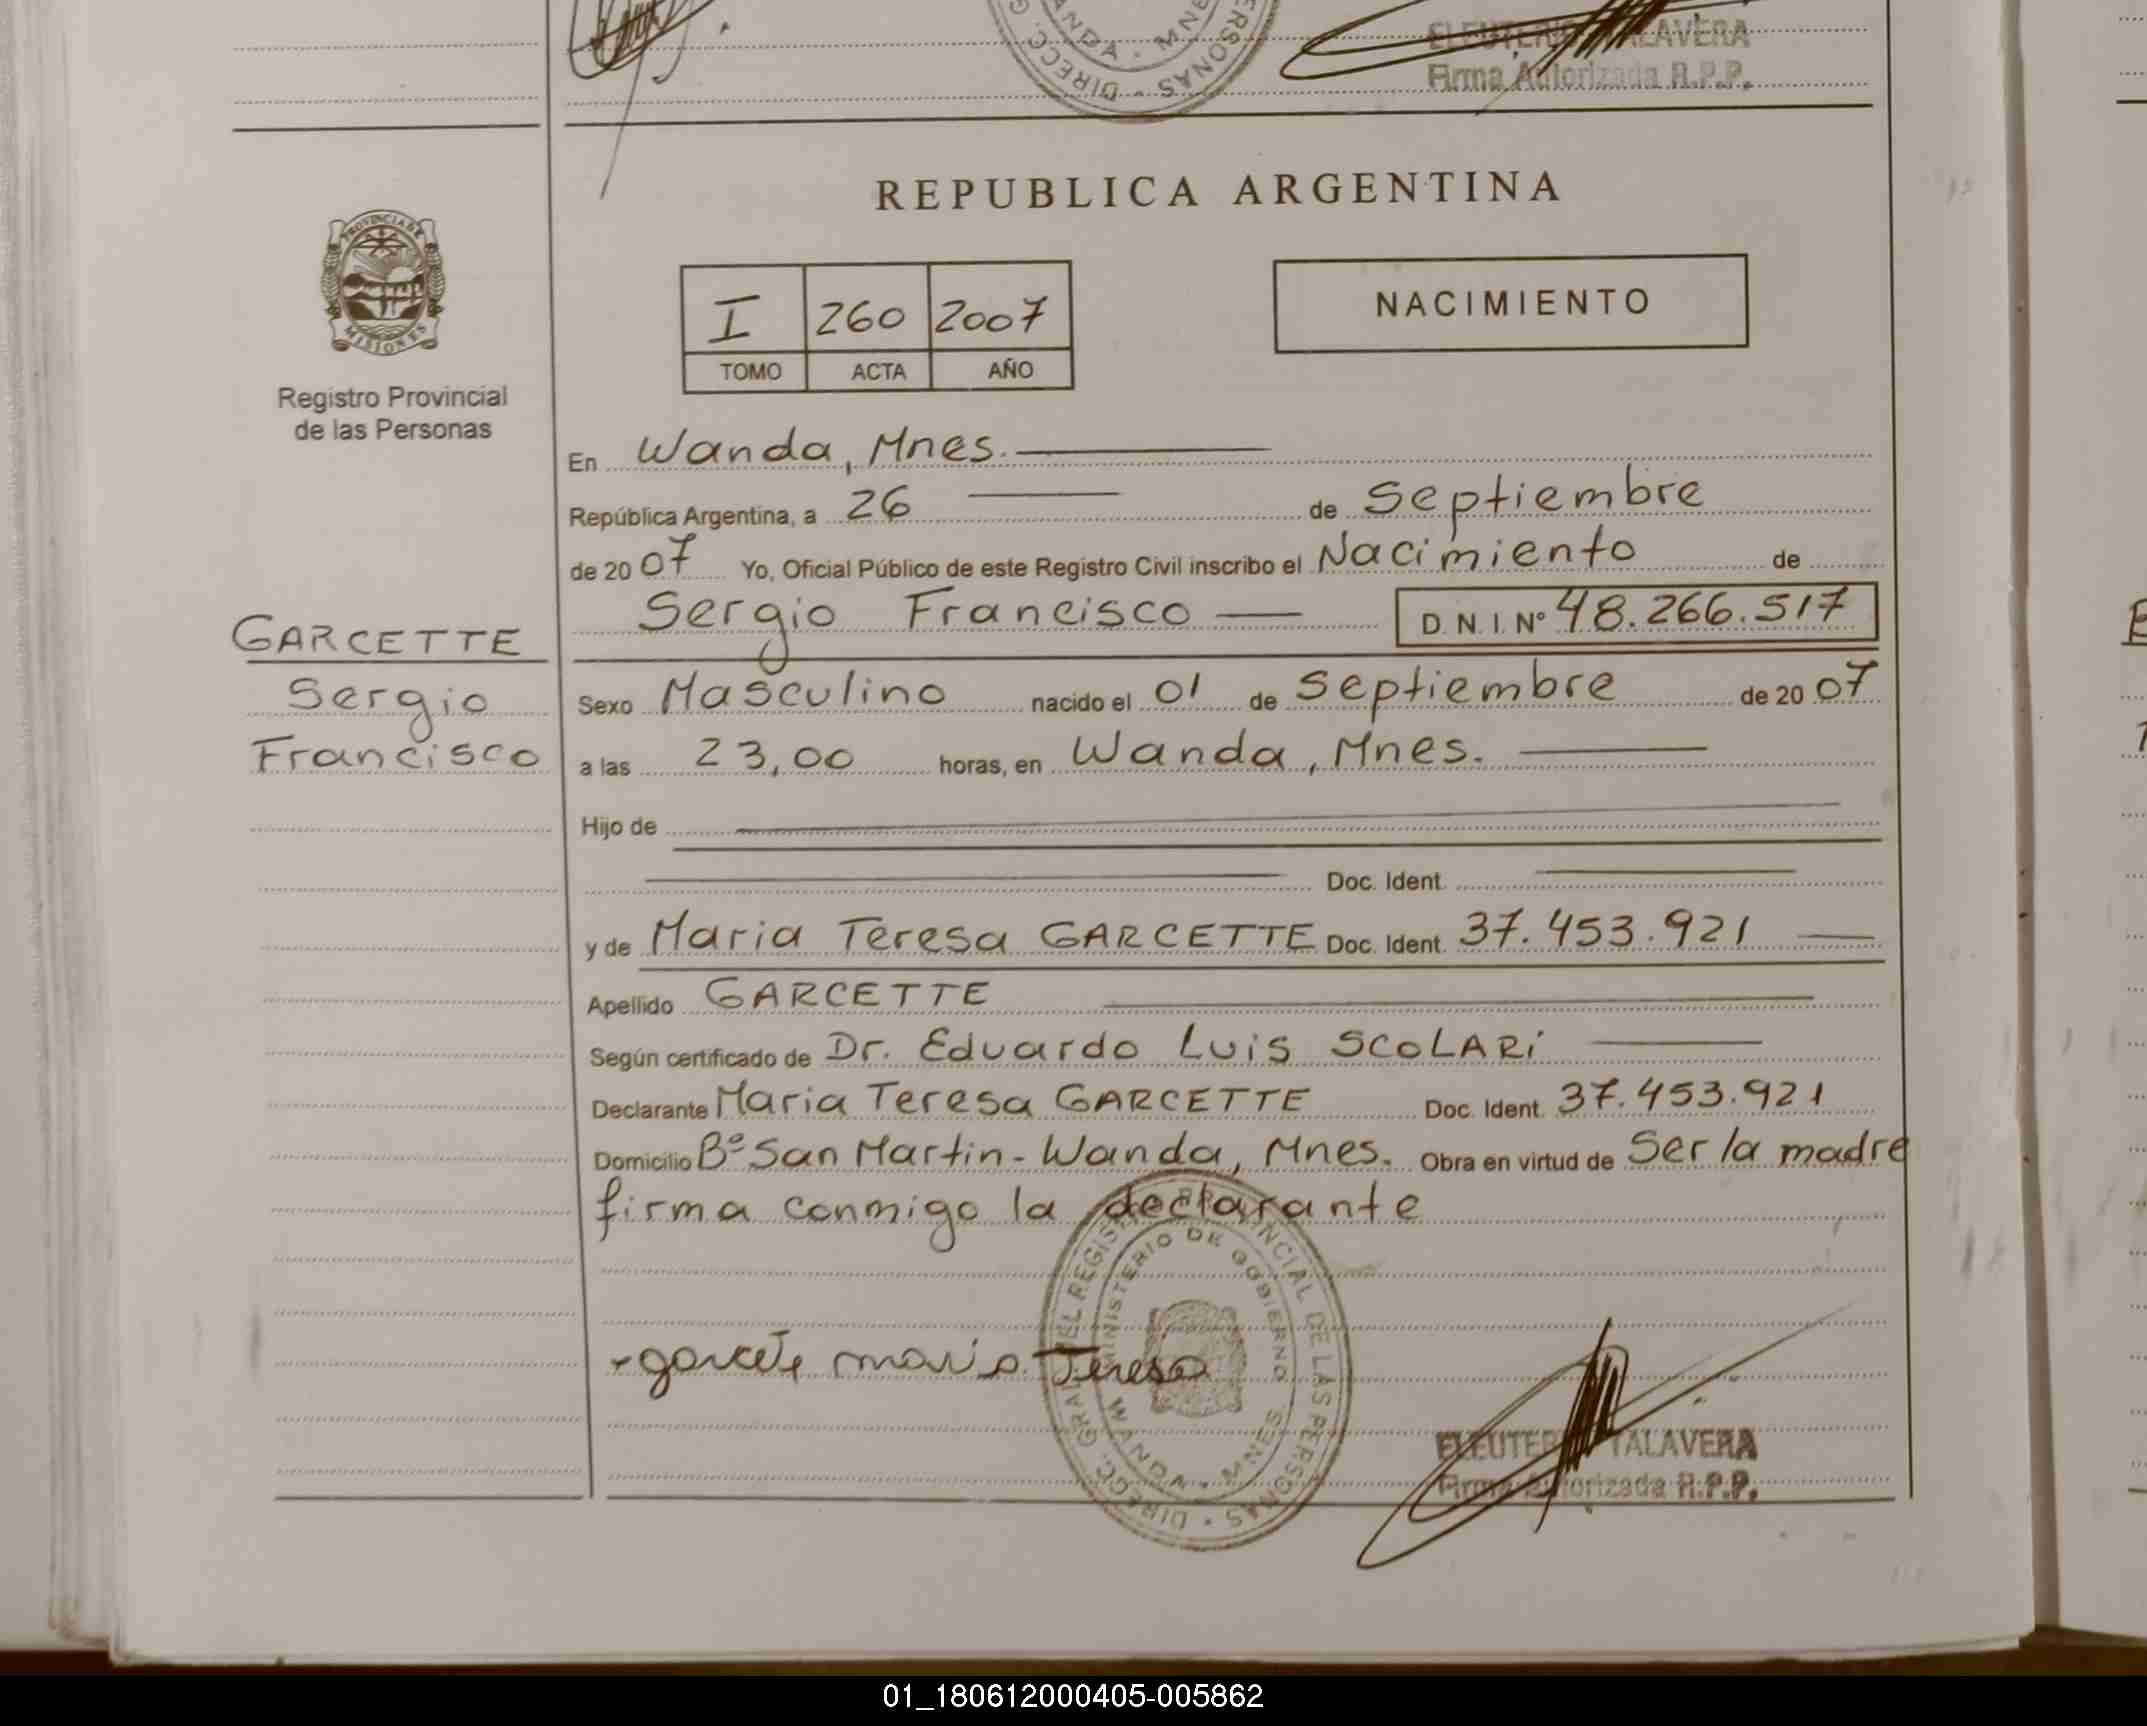 ELEUTERIO TALAVERA
Firma Autorizada R.P.P.
WANDA - MN
DIRECC. G
ERSONAS
REPUBLICA ARGENTINA
PROVINCIA DE
MISIONES
Registro Provincial
de las Personas
I 260 2007
TOMO ACTA AÑO
NACIMIENTO
En Wanda, Mnes.
República Argentina, a 26 de Septiembre
de 2007 Yo, Oficial Público de este Registro Civil inscribo el Nacimiento de
Sergio Francisco D.N.I. Nº 48.266.517
GARCETTE
Sergio
Francisco
Sexo Masculino nacido el 01 de Septiembre de 2007
a las 23,00 horas, en Wanda, Mnes.
Hijo de
Doc. Ident.
y de Maria Teresa GARCETTE Doc. Ident. 37.453.921
Apellido GARCETTE
Según certificado de Dr. Eduardo Luis SCOLARi
Declarante Maria Teresa GARCETTE Doc. Ident. 37.453.921
Domicilio Bº San Martin - Wanda, Mnes. Obra en virtud de Ser la madre
firma conmigo la declarante
MINISTERIO DE GOBIERNO
WANDA - MNES
DIRECC. GRAL DEL REGISTRO PROVINCIAL DE LAS PERSONAS
garcete maria Teresa
ELEUTERIO TALAVERA
Firma Autorizada R.P.P.
01_180612000405-005862